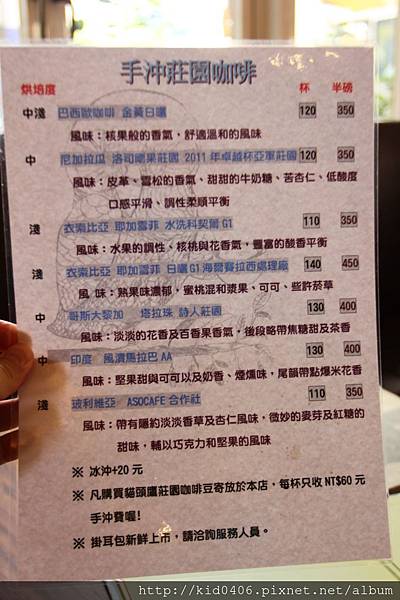 手沖莊園咖啡
烘培度 杯 半磅
中淺 巴西歐咖啡 金黃日曬 120 350
風味：核果般的香氣，舒適溫和的風味
中 尼加拉瓜 洛司 果莊園 2011 年卓越杯亞軍莊園 120 350
風味：皮革、雪松的香氣、甜甜的牛奶糖、苦杏仁、低酸度
口感平滑、調性柔順平衡
淺 衣索比亞 耶加雪菲 水洗科契爾 G1 110 350
風味：水果的調性、核桃與花香氣，豐富的酸香平衡
淺 衣索比亞 耶加雪菲 日曬 G1 海爾賽拉西處理廠 140 450
風 味：熟果味濃郁，蜜桃混和漿果、可可、些許菸草
中 哥斯大黎加 塔拉珠 詩人莊園 130 400
風味：淡淡的花香及百香果香氣，後段略帶焦糖甜及茶香
中 印度 風漬馬拉巴 AA 130 400
風味：堅果甜與可可以及奶香、煙燻味，尾韻帶點爆米花香
淺 玻利維亞 ASOCAFE 合作社 110 350
風味：帶有隱約淡淡香草及杏仁風味，微妙的麥芽及紅糖的
甜味，輔以巧克力和堅果的風味
※ 冰沖+20 元
※ 凡購買貓頭鷹莊園咖啡豆寄放於本店，每杯只收 NT$60 元
手沖費喔!
※ 掛耳包新鮮上市，請洽詢服務人員。
http://kid0406.pixnet.net/album